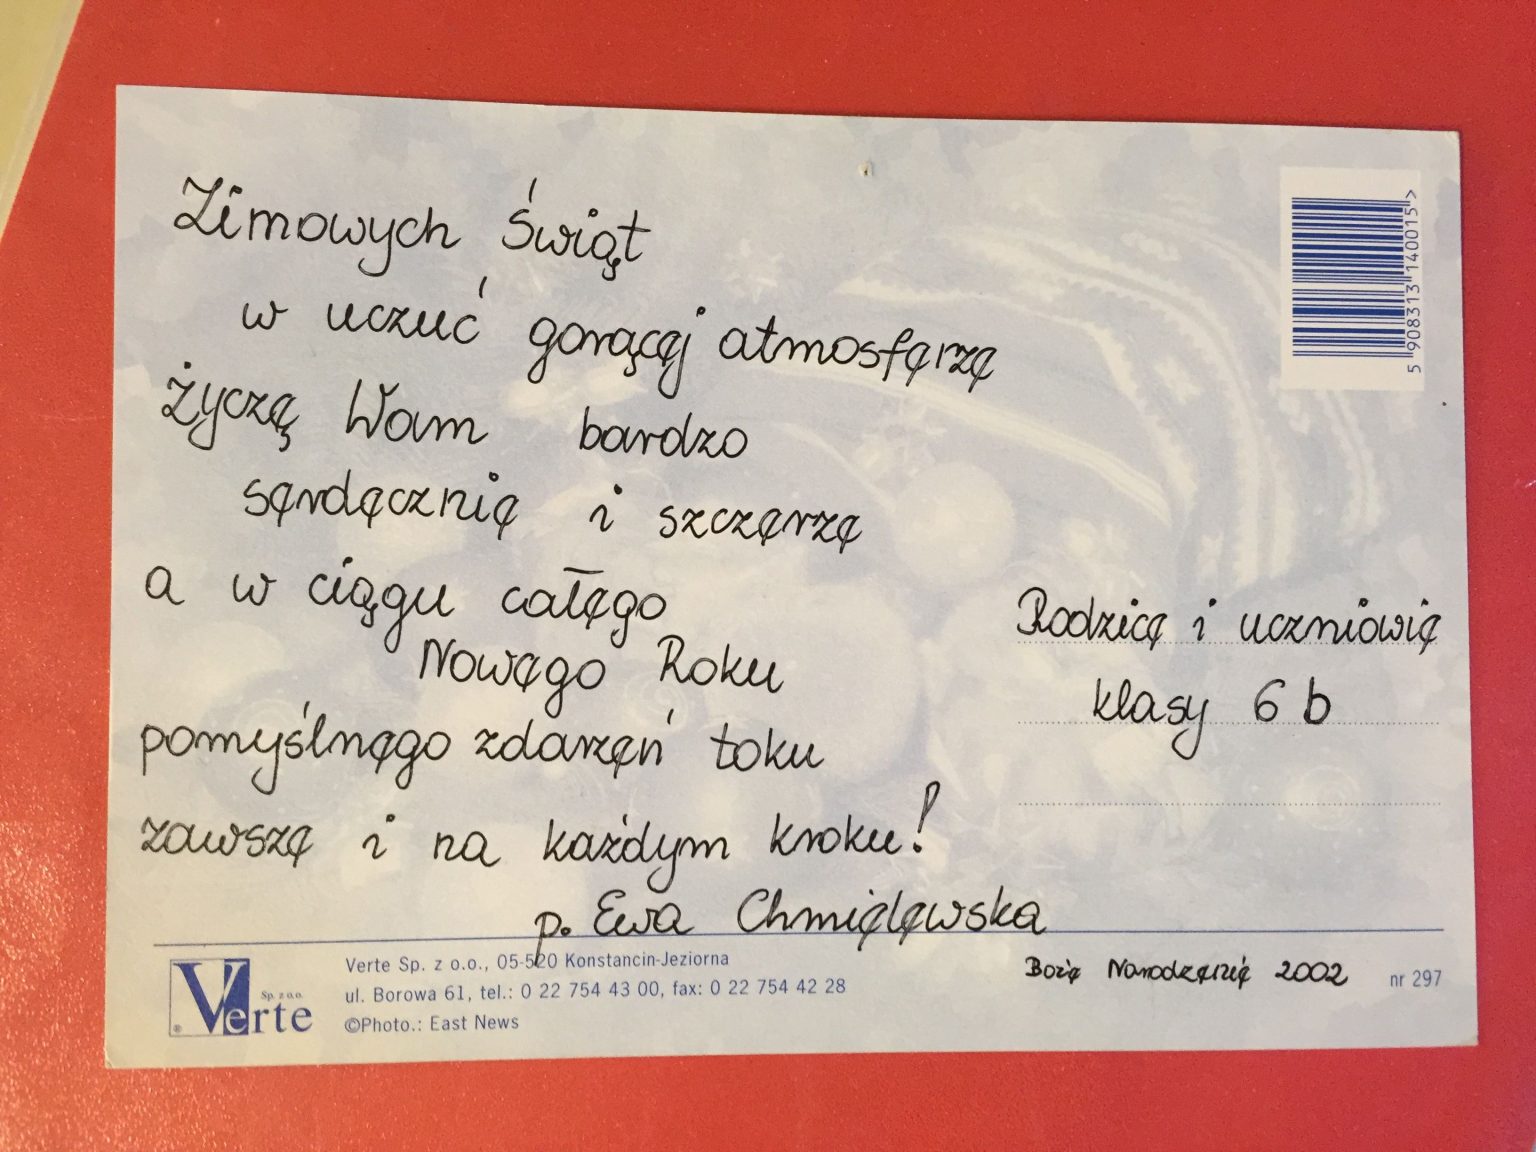 Zimowych Świąt
w uczuć gorącej atmosferze
życzę Wam bardzo
serdecznie i szczerze
a w ciągu całego
Nowego Roku
pomyślnego zdarzeń toku
zawsze i na każdym kroku!
p. Ewa Chmielewska
Rodzice i uczniowie
klasy 6 b
Boże Narodzenie 2002
5 908313 140015 >
Verte Sp. z o.o.
Verte Sp. z o.o., 05-520 Konstancin-Jeziorna
ul. Borowa 61, tel.: 0 22 754 43 00, fax: 0 22 754 42 28
©Photo.: East News
nr 297